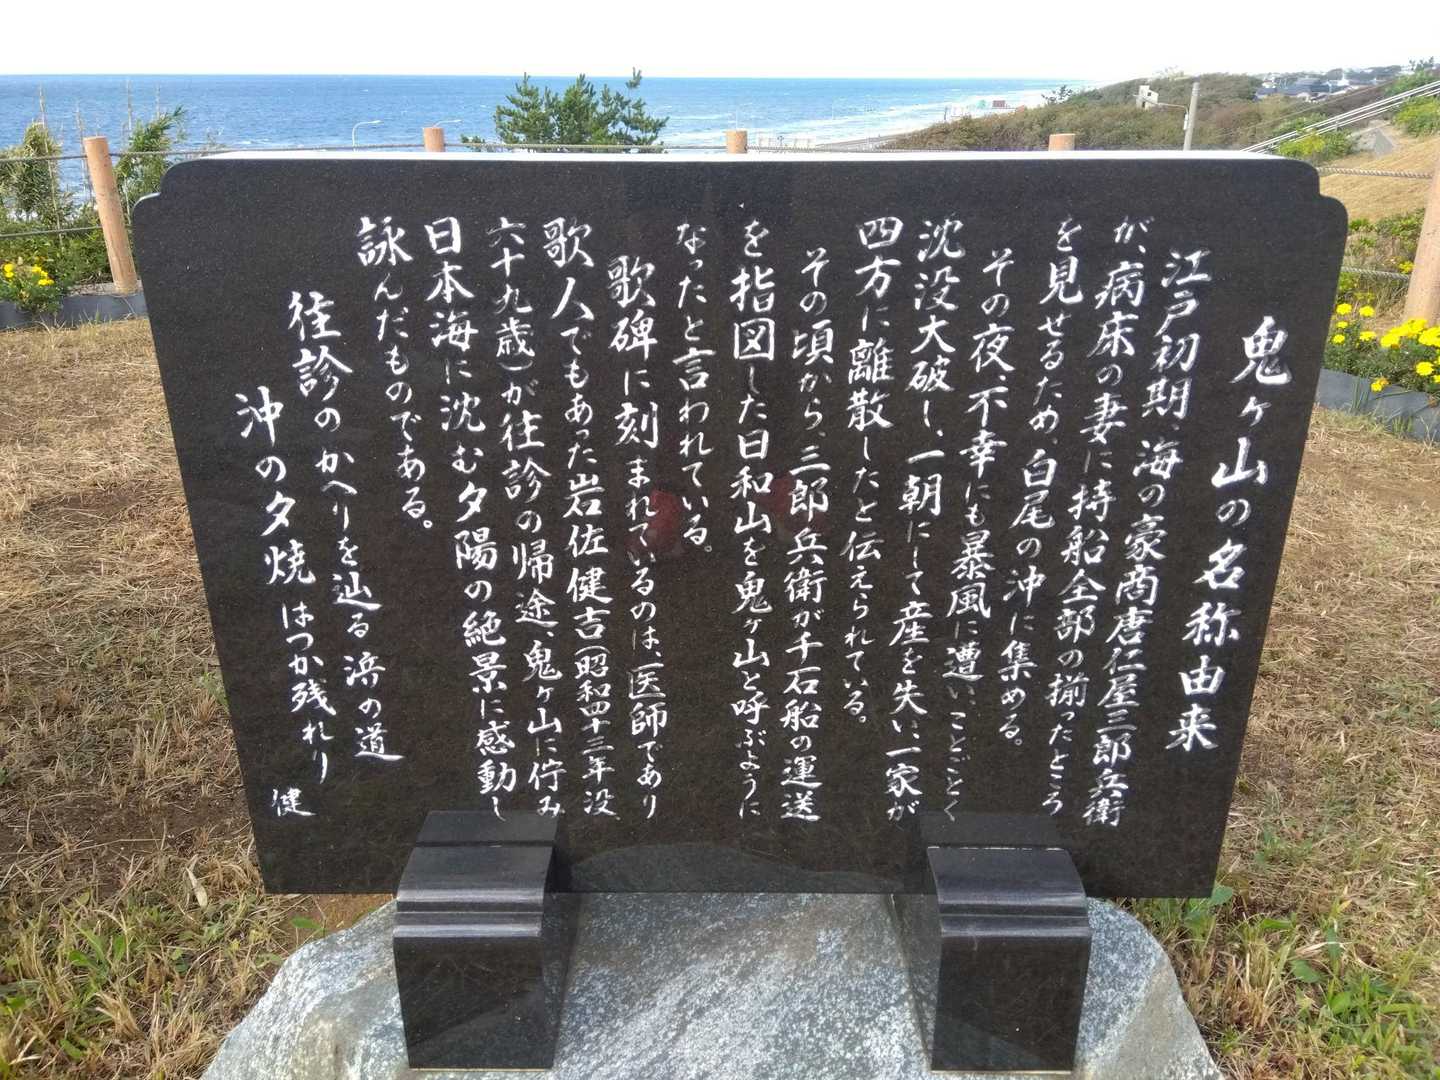 鬼ヶ山の名称由来
江戸初期、海の豪商唐仁屋三郎兵衛
が、病床の妻に持船全部の揃ったところ
を見せるため、白尾の沖に集める。
その夜、不幸にも暴風に遭い、ことごとく
沈没大破し、一朝にして産を失い、一家が
四方に離散したと伝えられている。
その頃から、三郎兵衛が千石船の運送
を指図した日和山を鬼ヶ山と呼ぶように
なったと言われている。
歌碑に刻まれているのは、医師であり
歌人でもあった岩佐健吉(昭和四十三年没、
六十九歳)が往診の帰途、鬼ヶ山に佇み
日本海に沈む夕陽の絶景に感動し
詠んだものである。
往診のかへりを辿る浜の道
沖の夕焼はつか残れり
健